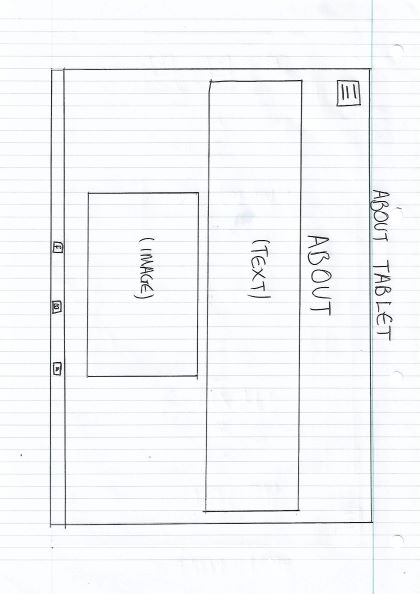 ABOUT TABLET
ABOUT
(TEXT)
(IMAGE)